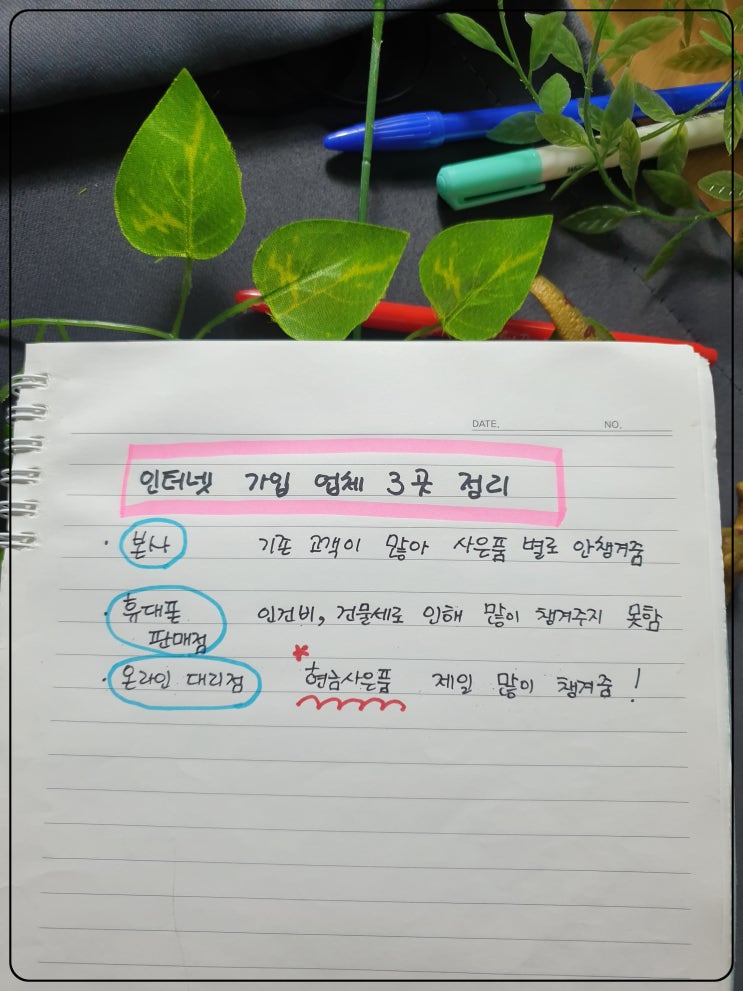 DATE. NO.
인터넷 가입 업체 3곳 정리
· 본사 기존 고객이 많아 사은품 별로 안챙겨줌
· 휴대폰 판매점 인건비, 건물세로 인해 많이 챙겨주지 못함
· 온라인 대리점 *현금사은품 제일 많이 챙겨줌!